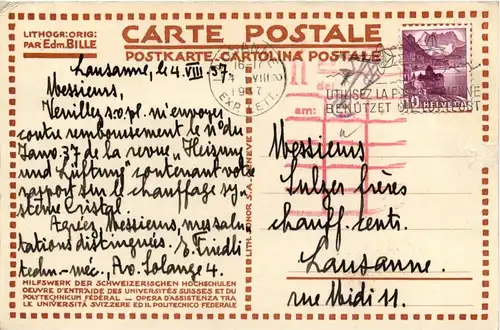 LITHOGR: ORIG:
PAR Edm. BILLE
CARTE POSTALE
POSTKARTE CARTOLINA POSTALE
Lausanne, le 4. VIII. 37.
Messieurs,
Veuillez s.v.pl. m'envoyer
contre remboursement le No du
Janv. 37 de la revue "Heizung
und Lüftung" contenant votre
rapport sur le chauffage sy-
stème Cristal.
Agréez, Messieurs, mes salu-
tations distinguées. E. Friedli
techn.-méc., Av. Solange 4.
HILFSWERK DER SCHWEIZERISCHEN HOCHSCHULEN
OEUVRE D'ENTRAIDE DES UNIVERSITÉS SUISSES ET DU
POLYTECHNICUM FÉDÉRAL – OPERA D'ASSISTENZA TRA
LE UNIVERSITÀ SVIZZERE ED IL POLITECNICO FEDERALE
LITH. SONOR S.A. GENÈVE
EXP. LETT.
11
am:
UTILISEZ LA
BENÜTZET DIE LUFTPOST
10
HELVETIA
Messieurs
Sulzer frères
chauff. centr.
Lausanne.
rue Midi 11.